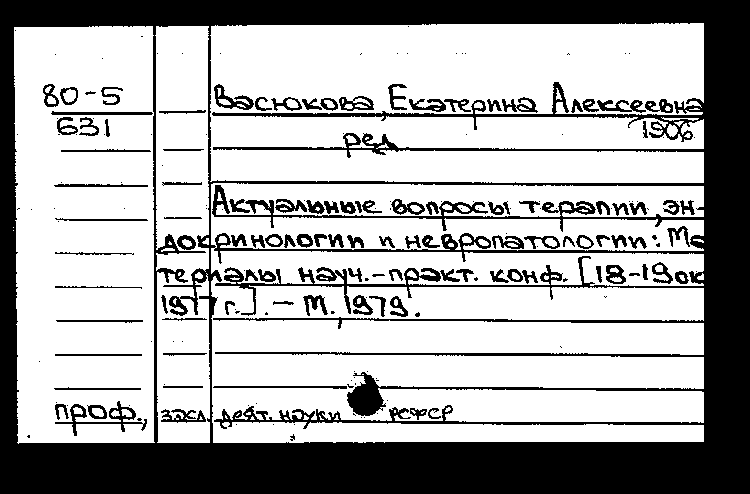 80-5 Васюкова, Екатерина Алексеевна
631 1906
ред.
Актуальные вопросы терапии, эн-
докринологии и невропатологии: Ма
териалы науч.-практ. конф. [18-19 ок
1977 г.]. - М., 1979.
проф., засл. деят. науки РСФСР